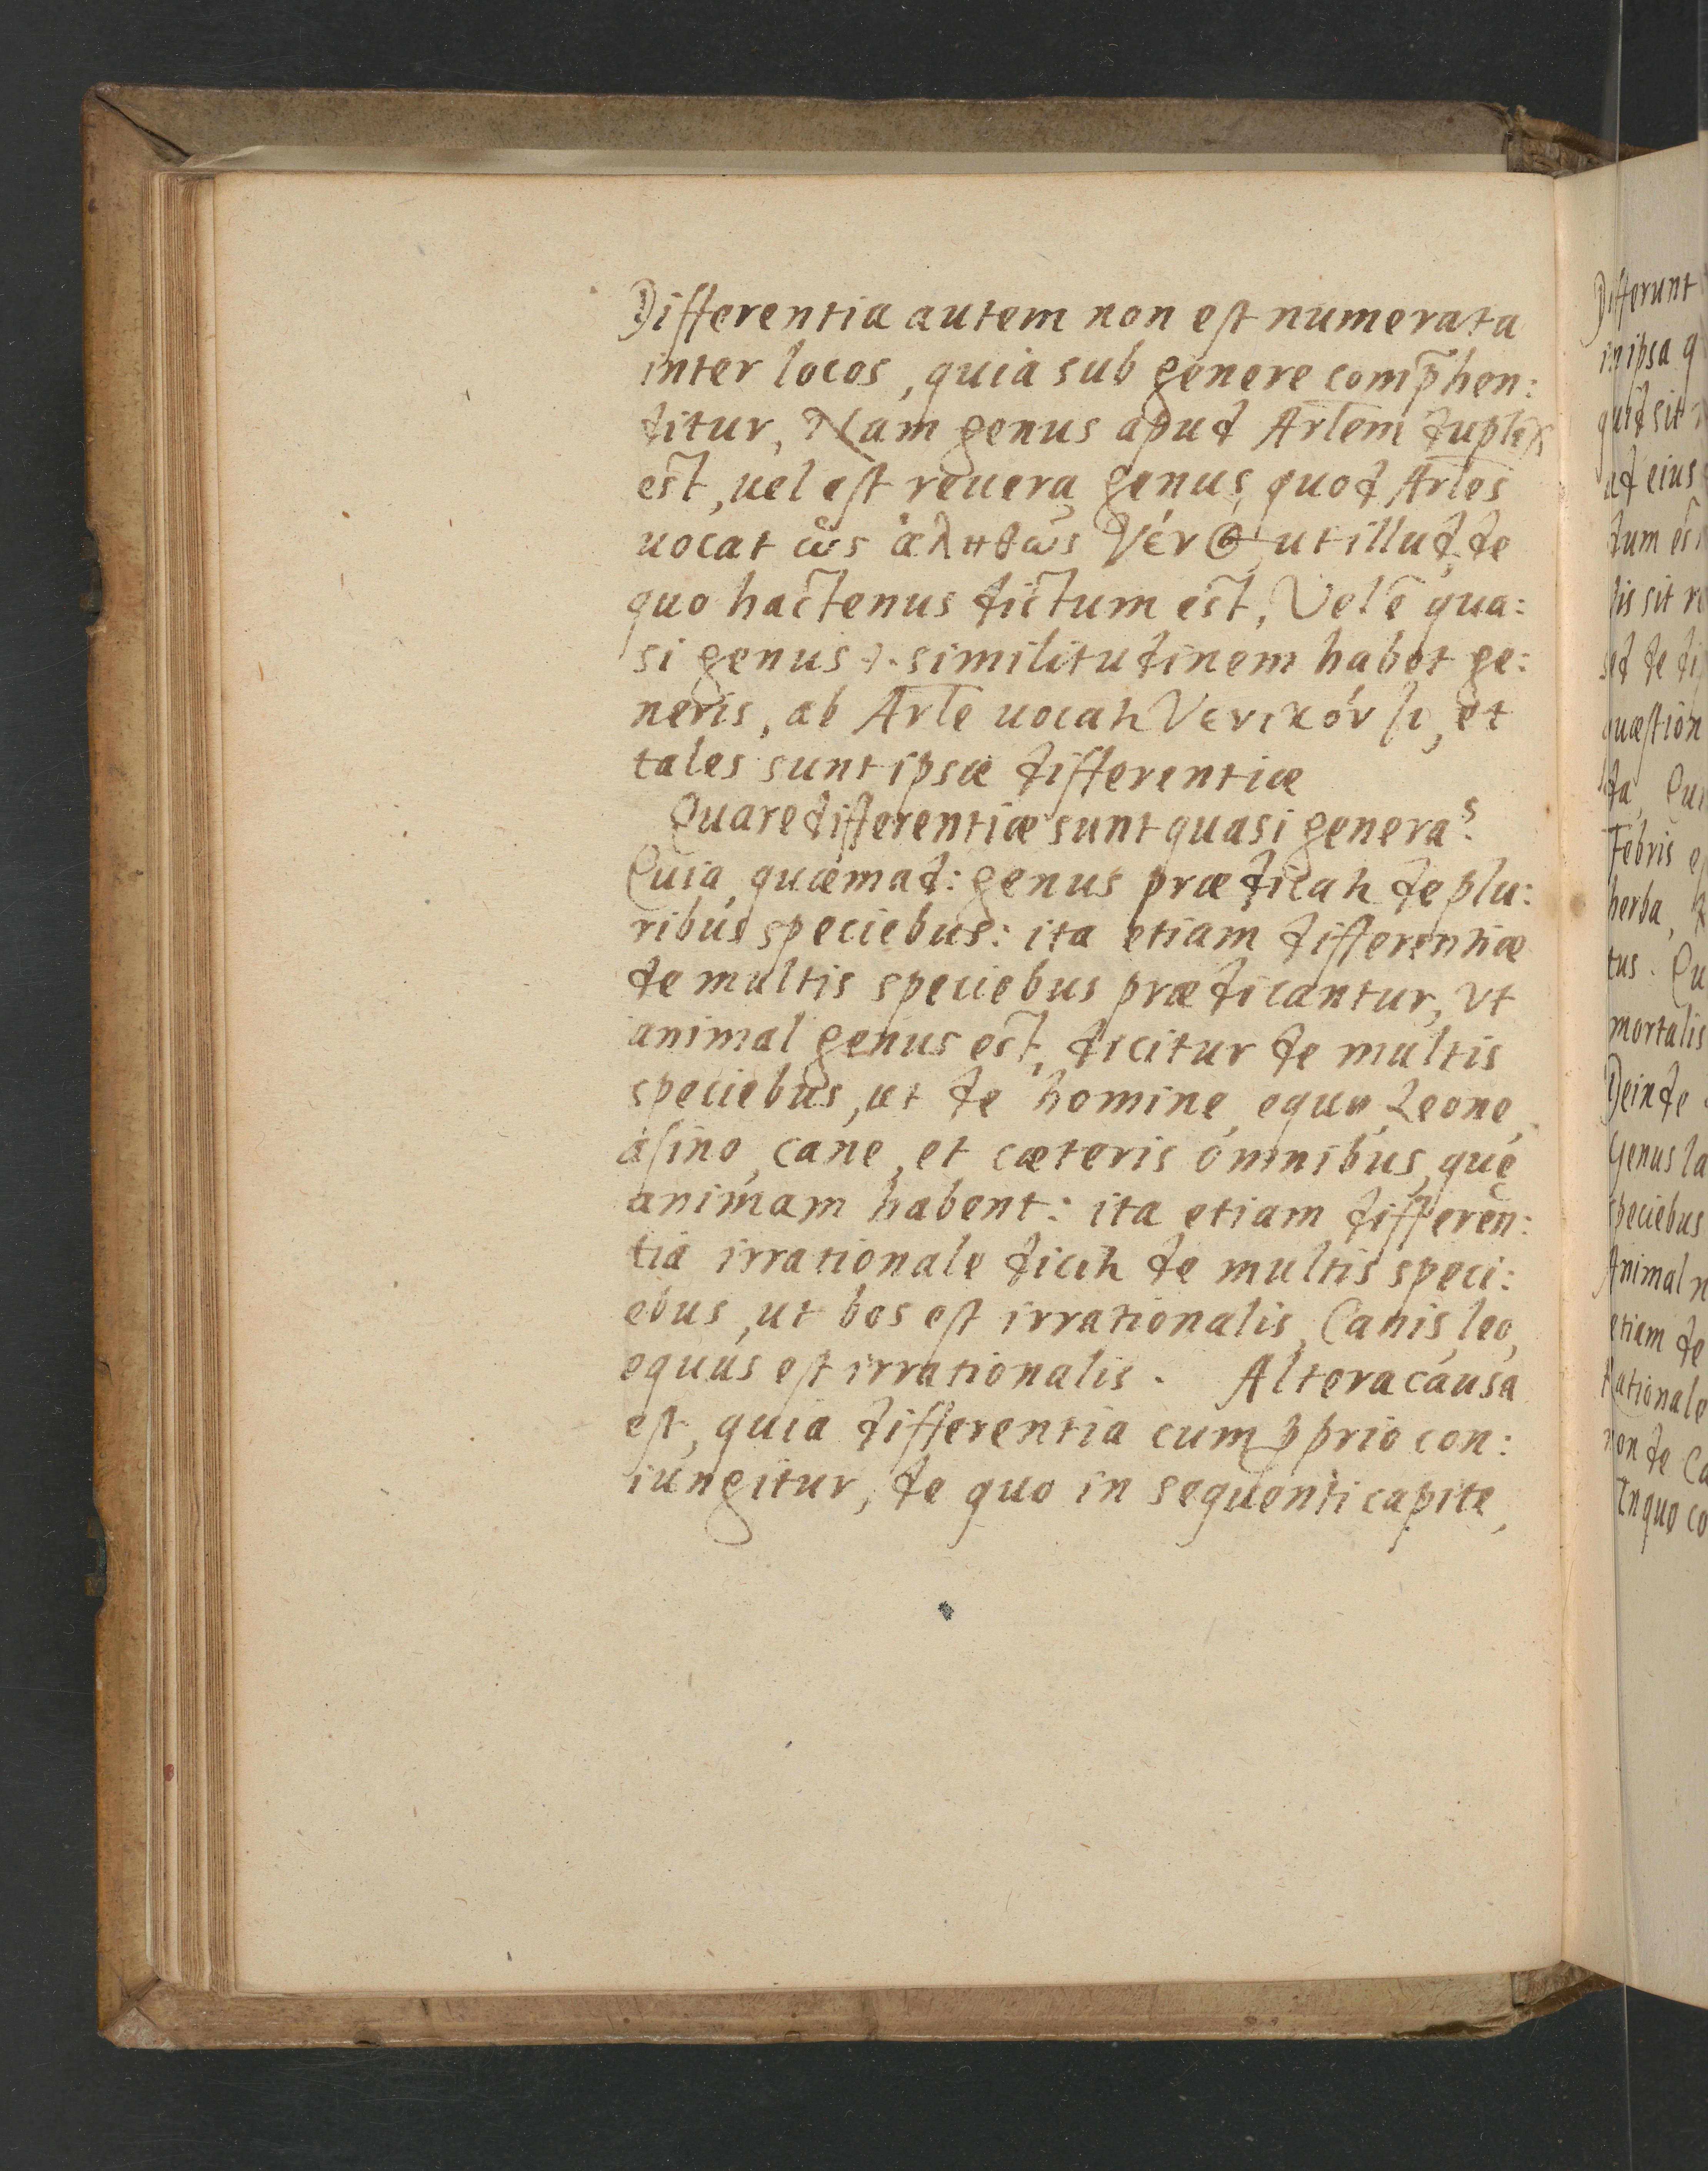 Differentia autem non est numerata
inter locos, quia sub genere comp̄hen:
ditur, Nam genus apud Ar̄lem duplex
est, uel est reuera genus, quod Ar̄les
uocat ὡς ἀληθῶς γένος, ut illud, de
quo hactenus dictum est, Vel ē qua:
si genus similitudinem habet ge:
neris, ab Ar̄le uocat̃ γενικόν et
tales sunt ipsæ differentiæ
Quare differentiæ sunt quasi genera?
Quia, quæmad: genus prædicat̃ de plu:
ribus speciebus: ita etiam differentiæ
de multis speciebus prædicantur, vt
animal genus est, dicitur de multis
speciebus, ut de homine, equo, Leone,
asino, cane, et cæteris omnibus, quę
animam habent: ita etiam differen:
tia irrationale dicit̃ de multis speci:
ebus, ut bos est irrationalis, Canis, leo,
equus est irrationalis. Altera causa
est, quia differentia cum ꝓprio con:
iungitur, de quo in sequenti capite,
Differunt
in ipsa q
quid sit
ad eius
dum est
lis sit
sed de di
quæstion
Febris
herba,
tus. Qu
mortalis
Deinde
Genus la
speciebus
Animal n
etiam de
Rationale
non de Ca
In quo co